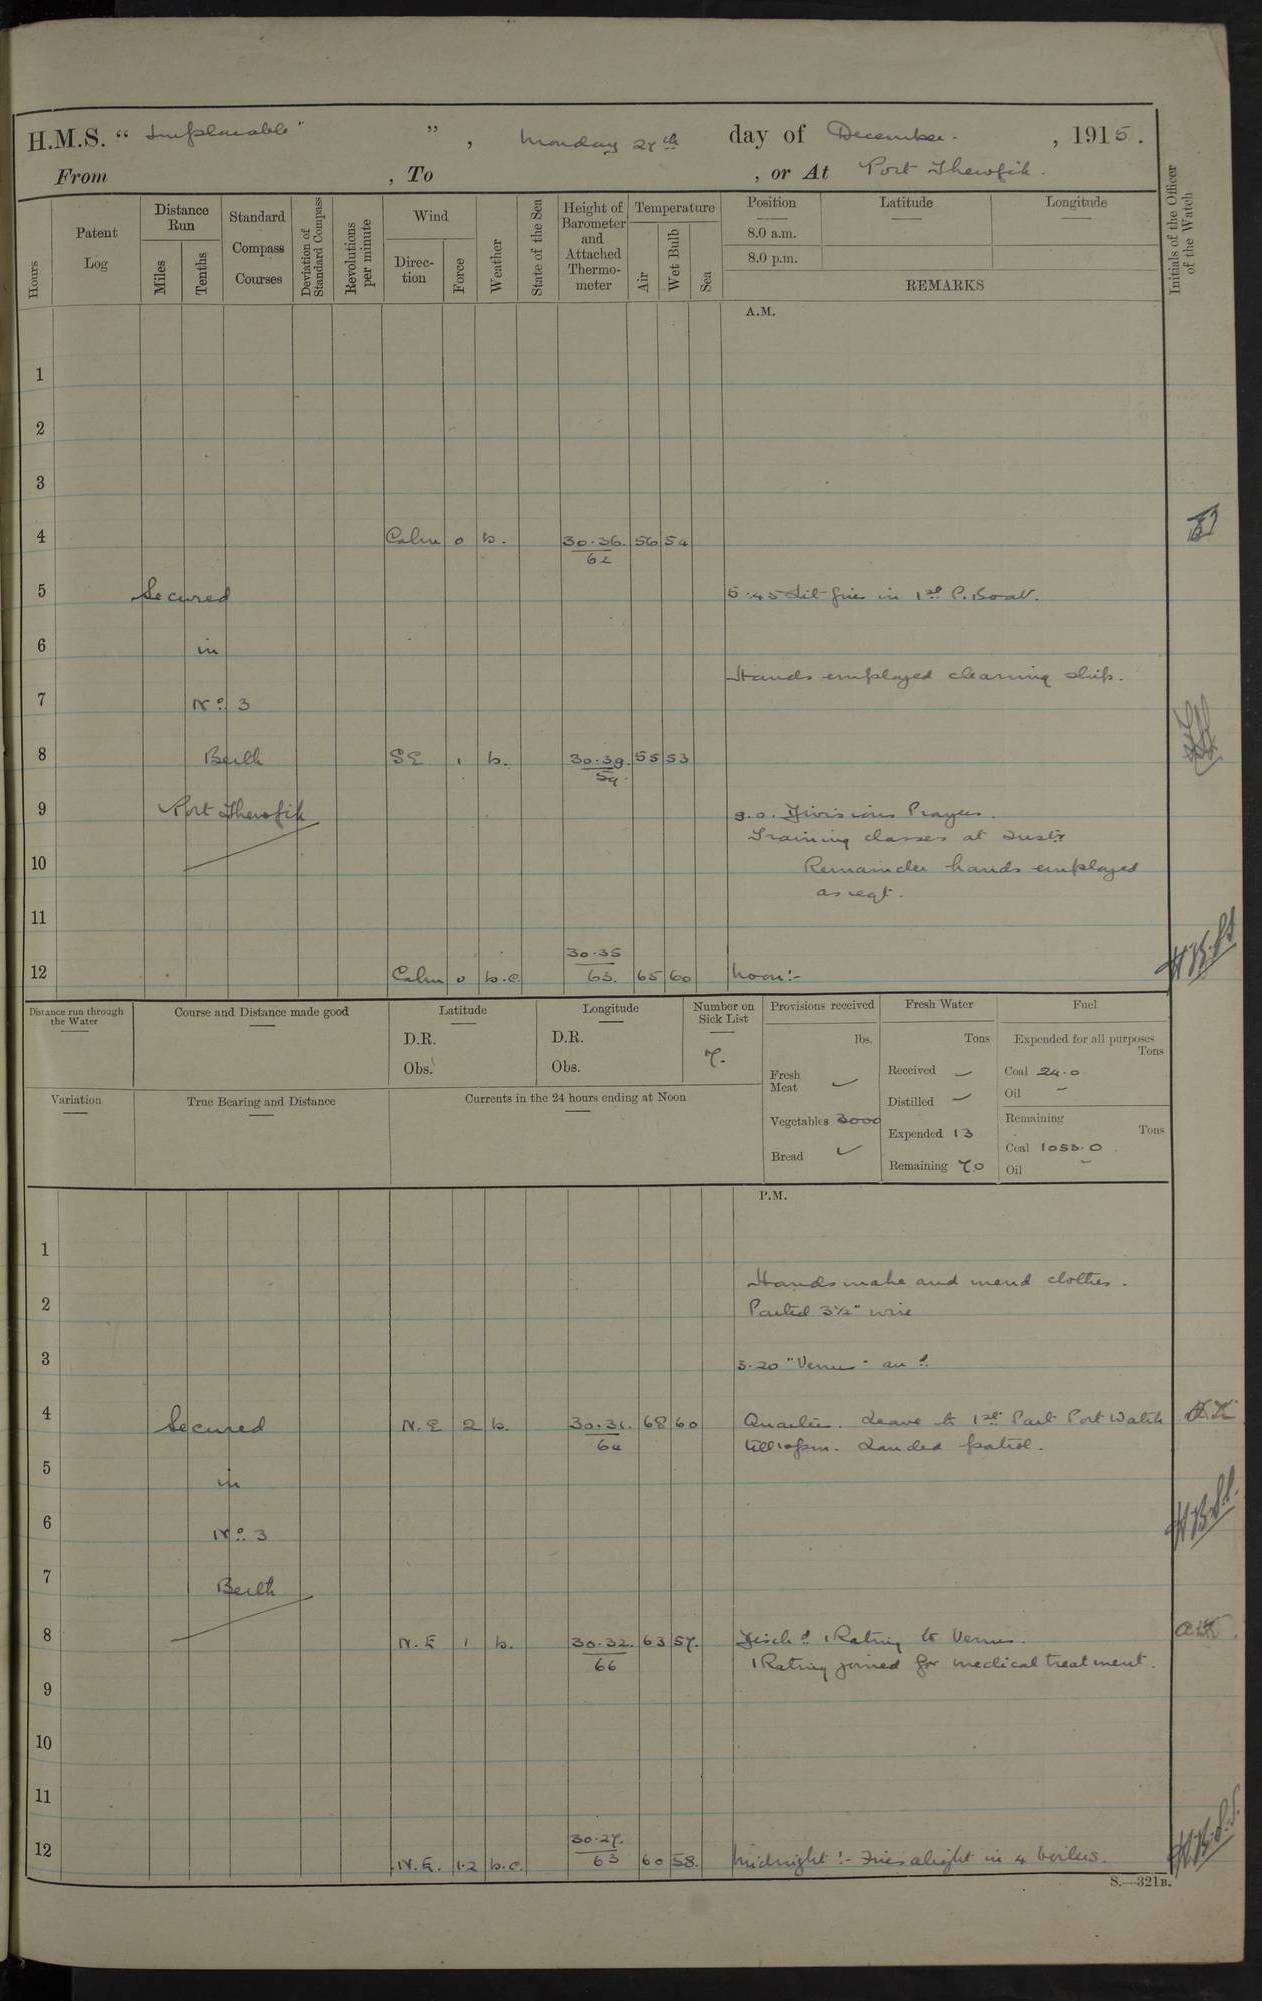 H.M.S. “ Implacable ” , Monday 27th day of December. , 1915.
From , To , or At Port Thewfik.
Hours
Patent Log
Distance Run
Miles
Tenths
Standard Compass Courses
Deviation of Standard Compass
Revolutions per minute
Wind
Direc-tion
Force
Weather
State of the Sea
Height of Barometer and Attached Thermo-meter
Temperature
Air
Wet Bulb
Sea
Position
Latitude
Longitude
8.0 a.m.
8.0 p.m.
REMARKS
Initials of the Officer of the Watch
A.M.
1
2
3
4 Calm 0 b. 30.36. 56 54
62
5 Secured 5.45 Lit fires in 1st P. Boat.
6 in
Hands employed cleaning ship.
7 No 3
8 Berth SE 1 b. 30.39. 55 53
59.
9 Port Thewfik 9.0. Divisions Prayers.
Training classes at Instr
10 Remainder hands employed
as reqt.
11
30.35
12 Calm 0 b.c. 63. 65 60 Noon:-
Distance run through the Water
Course and Distance made good
Latitude
D.R.
Obs.
Longitude
D.R.
Obs.
Number on Sick List
7.
Provisions received
lbs.
Fresh Meat
Vegetables 3000
Bread
Fresh Water
Tons
Received
Distilled
Expended 13
Remaining 70
Fuel
Expended for all purposes
Tons
Coal 24.0
Oil –
Remaining
Tons
Coal 1053.0
Oil –
Variation
True Bearing and Distance
Currents in the 24 hours ending at Noon
P.M.
1
Hands make and mend clothes.
2 Parted 3½" wire
3 3.20 "Venus" arrd.
4 Secured N.E 2 b. 30.31. 68 60 Quarters. Leave to 1st Part Port Watch
64 till 10pm. Landed patrol.
5 in
6 No 3
7 Berth
8 N.E 1 b. 30.32. 63 57. Dischd 1 Rating to Venus.
66 1 Rating joined for medical treatment.
9
10
11
30.27.
12 N.E. 1.2 b.c. 63 60 58. Midnight:- Fires alight in 4 boilers.
S.—321B.